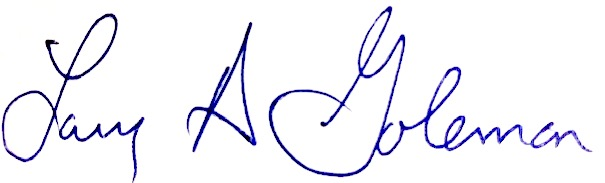 Larry A Goleman